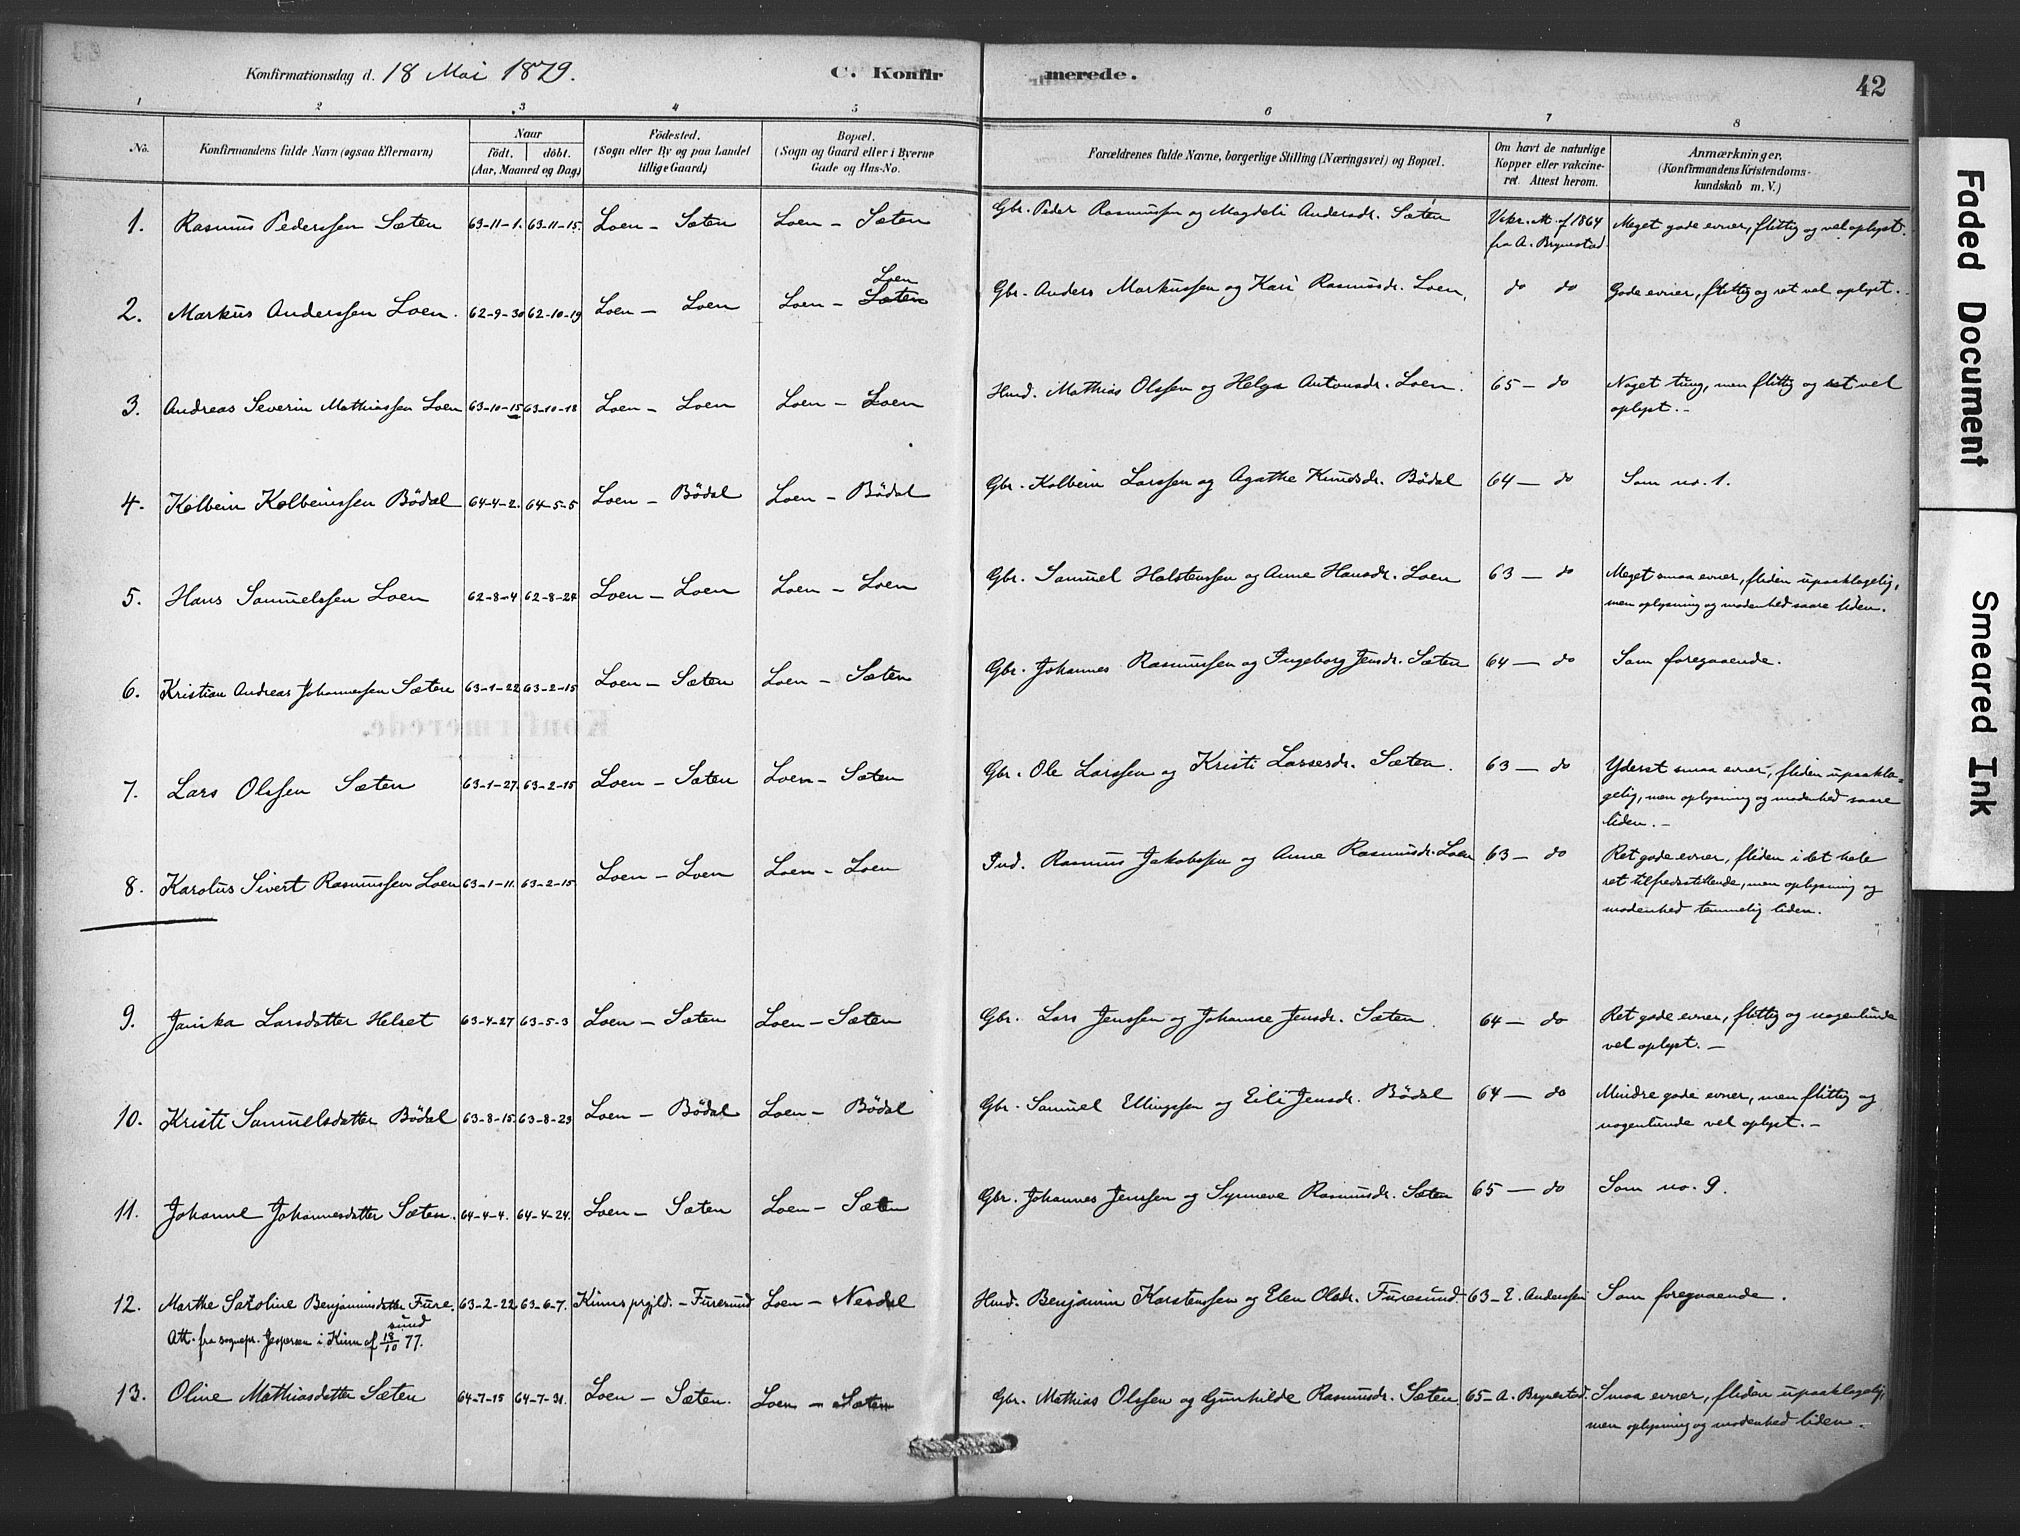 Konfirmationsdag d. 18 Mai 1879. C. Konfirmerede. 42
1 2 3 4 5 6 7 8
No. Konfirmandens fulde Navn (ogsaa Efternavn) Naar født. døbt. (Aar, Maaned og Dag) Fødested. (Sogn eller By og paa Landet tillige Gaard) Bopæl. (Sogn og Gaard eller i Byerne Gade og Hus-No. Forældrenes fulde Navne, borgerlige Stilling (Næringsvei) og Bopæl. Om havt de naturlige Kopper eller vakcineret. Attest herom. Anmærkninger. (Konfirmandens Kristendomskundskab m. V.)
1. Rasmus Pederssen Sæten 63-11-1. 63-11-15. Loen - Sæten Loen - Sæten Gbr. Peder Rasmussen og Magdeli Andersdr. Sæten Vkr. Att. af 1864 Meget gode evner, flittig og vel oplyst.
fra A. Brynestad.
Loen
2. Markus Anderssen Loen. 62-9-30 62-10-19 Loen - Loen Loen - Sæten Gbr. Anders Markussen og Kari Rasmusdr. Loen. do do Gode evner, flittig og ret vel oplyst.
3. Andreas Severin Mathiassen Loen 63-10-15 63-10-18 Loen - Loen Loen - Loen Husd. Mathias Olssen og Helga Antonsdr. Loen. 65 - do Noget tung, men flittig og ret vel
oplyst. -
4. Kolbein Kolbeinssen Bödal 64-4-2. 64-5-5 Loen - Bödal Loen - Bödal Gbr. Kolbein Larssen og Agathe Knudsdr. Bödal 64 - do Som no. 1.
5. Hans Samuelssen Loen 62-8-4 62-8-24 Loen - Loen Loen - Loen Gbr. Samuel Holstenssen og Anne Hansdr. Loen 63 - do Meget smaa evner, fliden upaaklagelig,
men oplysning og modenhed saare liden.
6. Kristian Andreas Johannessen Sæten 63-1-22 63-2-15 Loen - Sæten Loen - Sæten Gbr. Johannes Rasmussen og Ingeborg Jensdr. Sæten 64 - do Som foregaaende.
7. Lars Olssen Sæten 63-1-27. 63-2-15 Loen - Sæten Loen - Sæten Gbr. Ole Larssen og Kristi Lassesdr. Sæten. 63 - do Yderst smaa evner, fliden upaakla-
gelig, men oplysning og modenhed saare
liden. -
8. Karolus Sivert Rasmussen Loen 63-1-11. 63-2-15 Loen - Loen Loen - Loen Ind. Rasmus Jakobssen og Anne Rasmusdr. Loen 63 - do Ret gode evner, fliden i det hele
ret tilfredsstillende, men oplysning og
modenhed temmelig liden.
9. Janika Larsdatter Helset 63-4-27 63-5-3 Loen - Sæten Loen - Sæten Gbr. Lars Jenssen og Johanne Jensdr. Sæten. 64 - do Ret gode evner, flittig og nogenlunde
vel oplyst. -
10. Kristi Samuelsdatter Bödal 63-8-15. 63-8-23 Loen - Bödal Loen - Bödal Gbr. Samuel Ellingssen og Eili Jensdr. Bödal 64 - do Mindre gode evner, men flittig og
nogenlunde vel oplyst. -
11. Johanne Johannesdatter Sæten. 64-4-4. 64-4-24. Loen - Sæten Loen - Sæten Gbr. Johannes Jenssen og Synneve Rasmusdr. Sæten 65 - do Som no. 9.
12. Marthe Saroline Benjaminsdatter Fure- 63-2-22 63-6-7. Kinns prgjld. - Furesund Loen - Nesdal Husd. Benjamin Karstenssen og Elen Olsdr. Furesund. 63 - E. Anderssen Som foregaaende.
sund
Att. fra sognepr. Jespersen i Kinn af 18/10 77.
13. Oline Mathiasdatter Sæten 64-7-15 64-7-31. Loen - Sæten. Loen - Sæten Gbr. Mathias Olssen og Gunhilde Rasmusdr. Sæten 65 - A. Brynestad. Smaa evner, fliden upaaklagelig,
men oplysning og modenhed liden. -
Faded Document
Smeared Ink